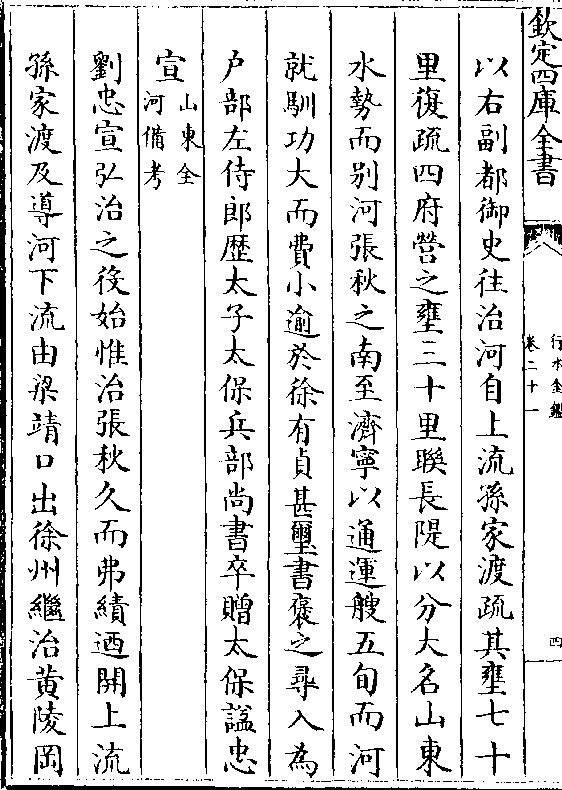 欽定四庫全書
行水金鑑
卷二十一
四
以右副都御史往治河自上流孫家渡疏其壅七十
里復疏四府營之壅三十里聮長隄以分大名山東
水勢而别河張秋之南至濟寧以通運艘五旬而河
就馴功大而費小逾於徐有貞甚璽書褒之尋入為
户部左侍郎歴太子太保兵部尚書卒贈太保諡忠
宣山東全河備考
劉忠宣弘治之役始惟治張秋久而弗績廼開上流
孫家渡及導河下流由梁靖口出徐州繼治黄陵岡